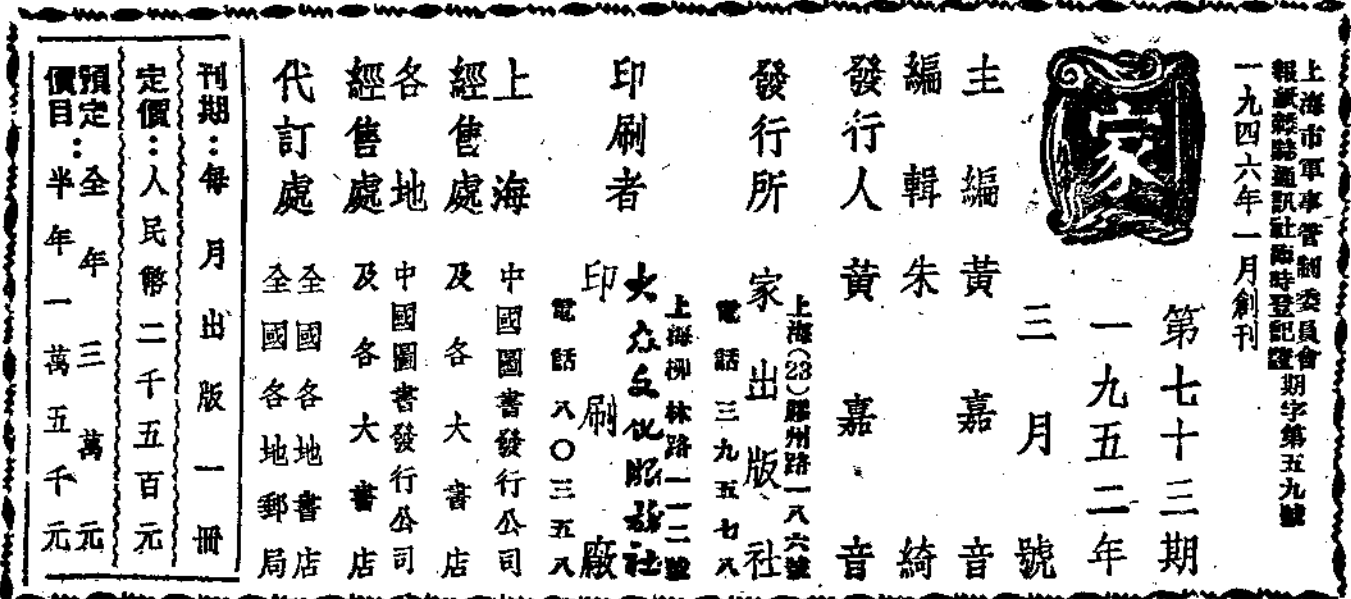 上海市軍事管制委員會
報紙雜誌通訊社臨時登記證期字第五九號
一九四六年一月創刊
家
第七十三期
一九五二年
三月號
主編黃嘉音
編輯朱綺
發行人黃嘉音
發行所家出版社
上海(23)膠州路一八六號
電話三九五七八
印刷者大众文化服務社印刷廠
上海柳林路一一二號
電話八〇三五八
上海經售處中國圖書發行公司及各大書店
各地經售處中國圖書發行公司及各大書店
代訂處全國各地書店
全國各地郵局
刊期：每月出版一冊
定價：人民幣二千五百元
預定價目：全年三萬元
半年一萬五千元